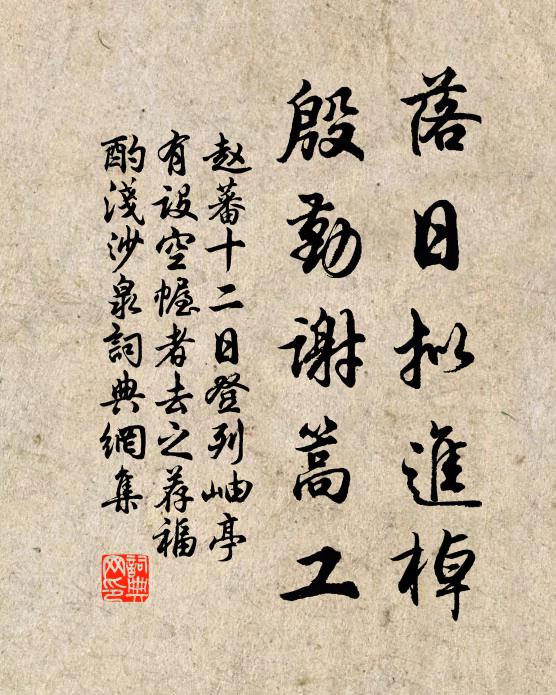 落日拟進棹
殷勤謝蒿工
赵蕃十二日登列岫亭
有設空幄者去之荐福
酌淺沙泉詞典網集
詞典網印